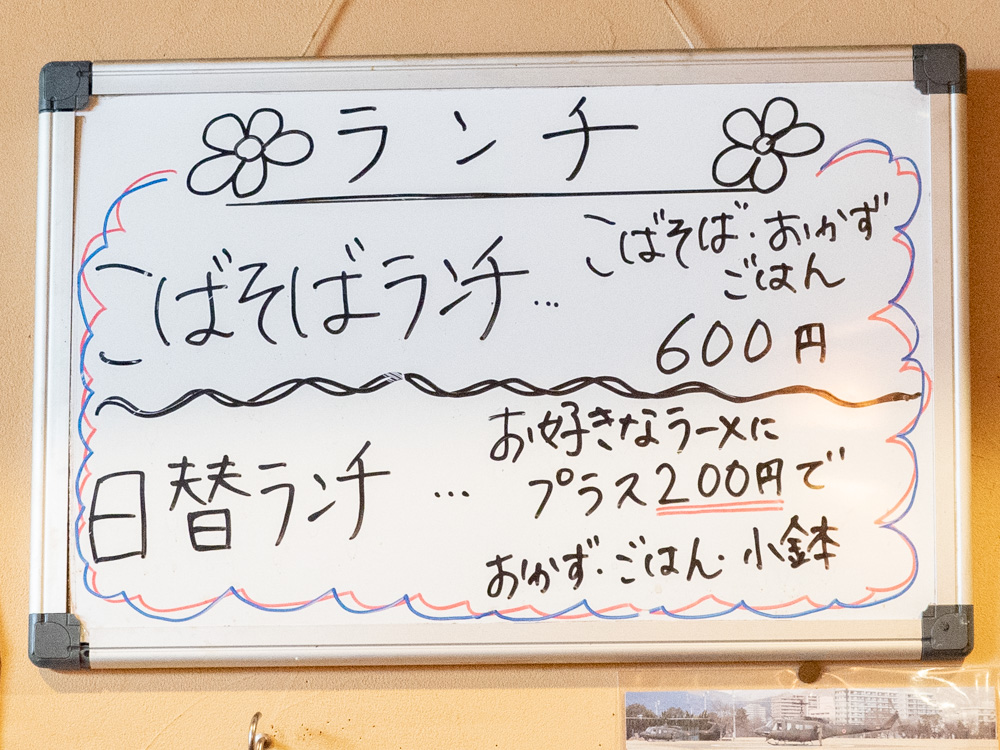 ランチ
こばそばランチ…
こばそば・おかず
ごはん
600円
日替ランチ…
お好きなラーメに
プラス200円で
おかず・ごはん・小鉢